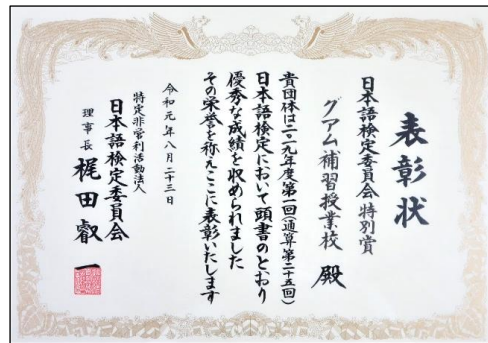 表彰状
日本語検定委員会 特別賞
グアム補習授業校 殿
貴団体は二〇一九年度第一回(通算第二十五回)
日本語検定において頭書のとおり
優秀な成績を収められました
その栄誉を称えここに表彰いたします
令和元年八月二十三日
特定非営利活動法人
日本語検定委員会
理事長 梶田叡一